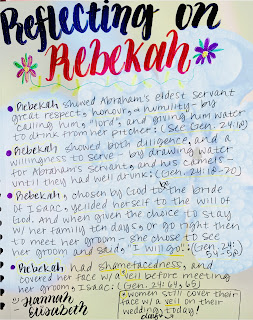 Reflecting on
Rebekah
Rebekah showed Abraham's eldest servant
great respect, honour, & humility - by
calling him, "lord", and giving him water
to drink from her pitcher: (See Gen. 24:18)
Rebekah showed both diligence, and a
willingness to serve - by drawing water
for Abraham's servant, and his camels -
until they had well drunk: (Gen. 24:18-20)
Rebekah, chosen by God to be the bride
of Isaac, yielded herself to the will of
God. And when given the choice to stay
w/ her family ten days, or go right then
to meet her groom - she chose to see
her groom and said, "I will go": (Gen. 24:
54-58)
Rebekah had shamefacedness, and
covered her face w/ a veil before meeting
her groom, Isaac: (Gen. 24:64,65)
Hannah
Elisabeth
*women still cover their
face w/ a veil on their
wedding today!
day